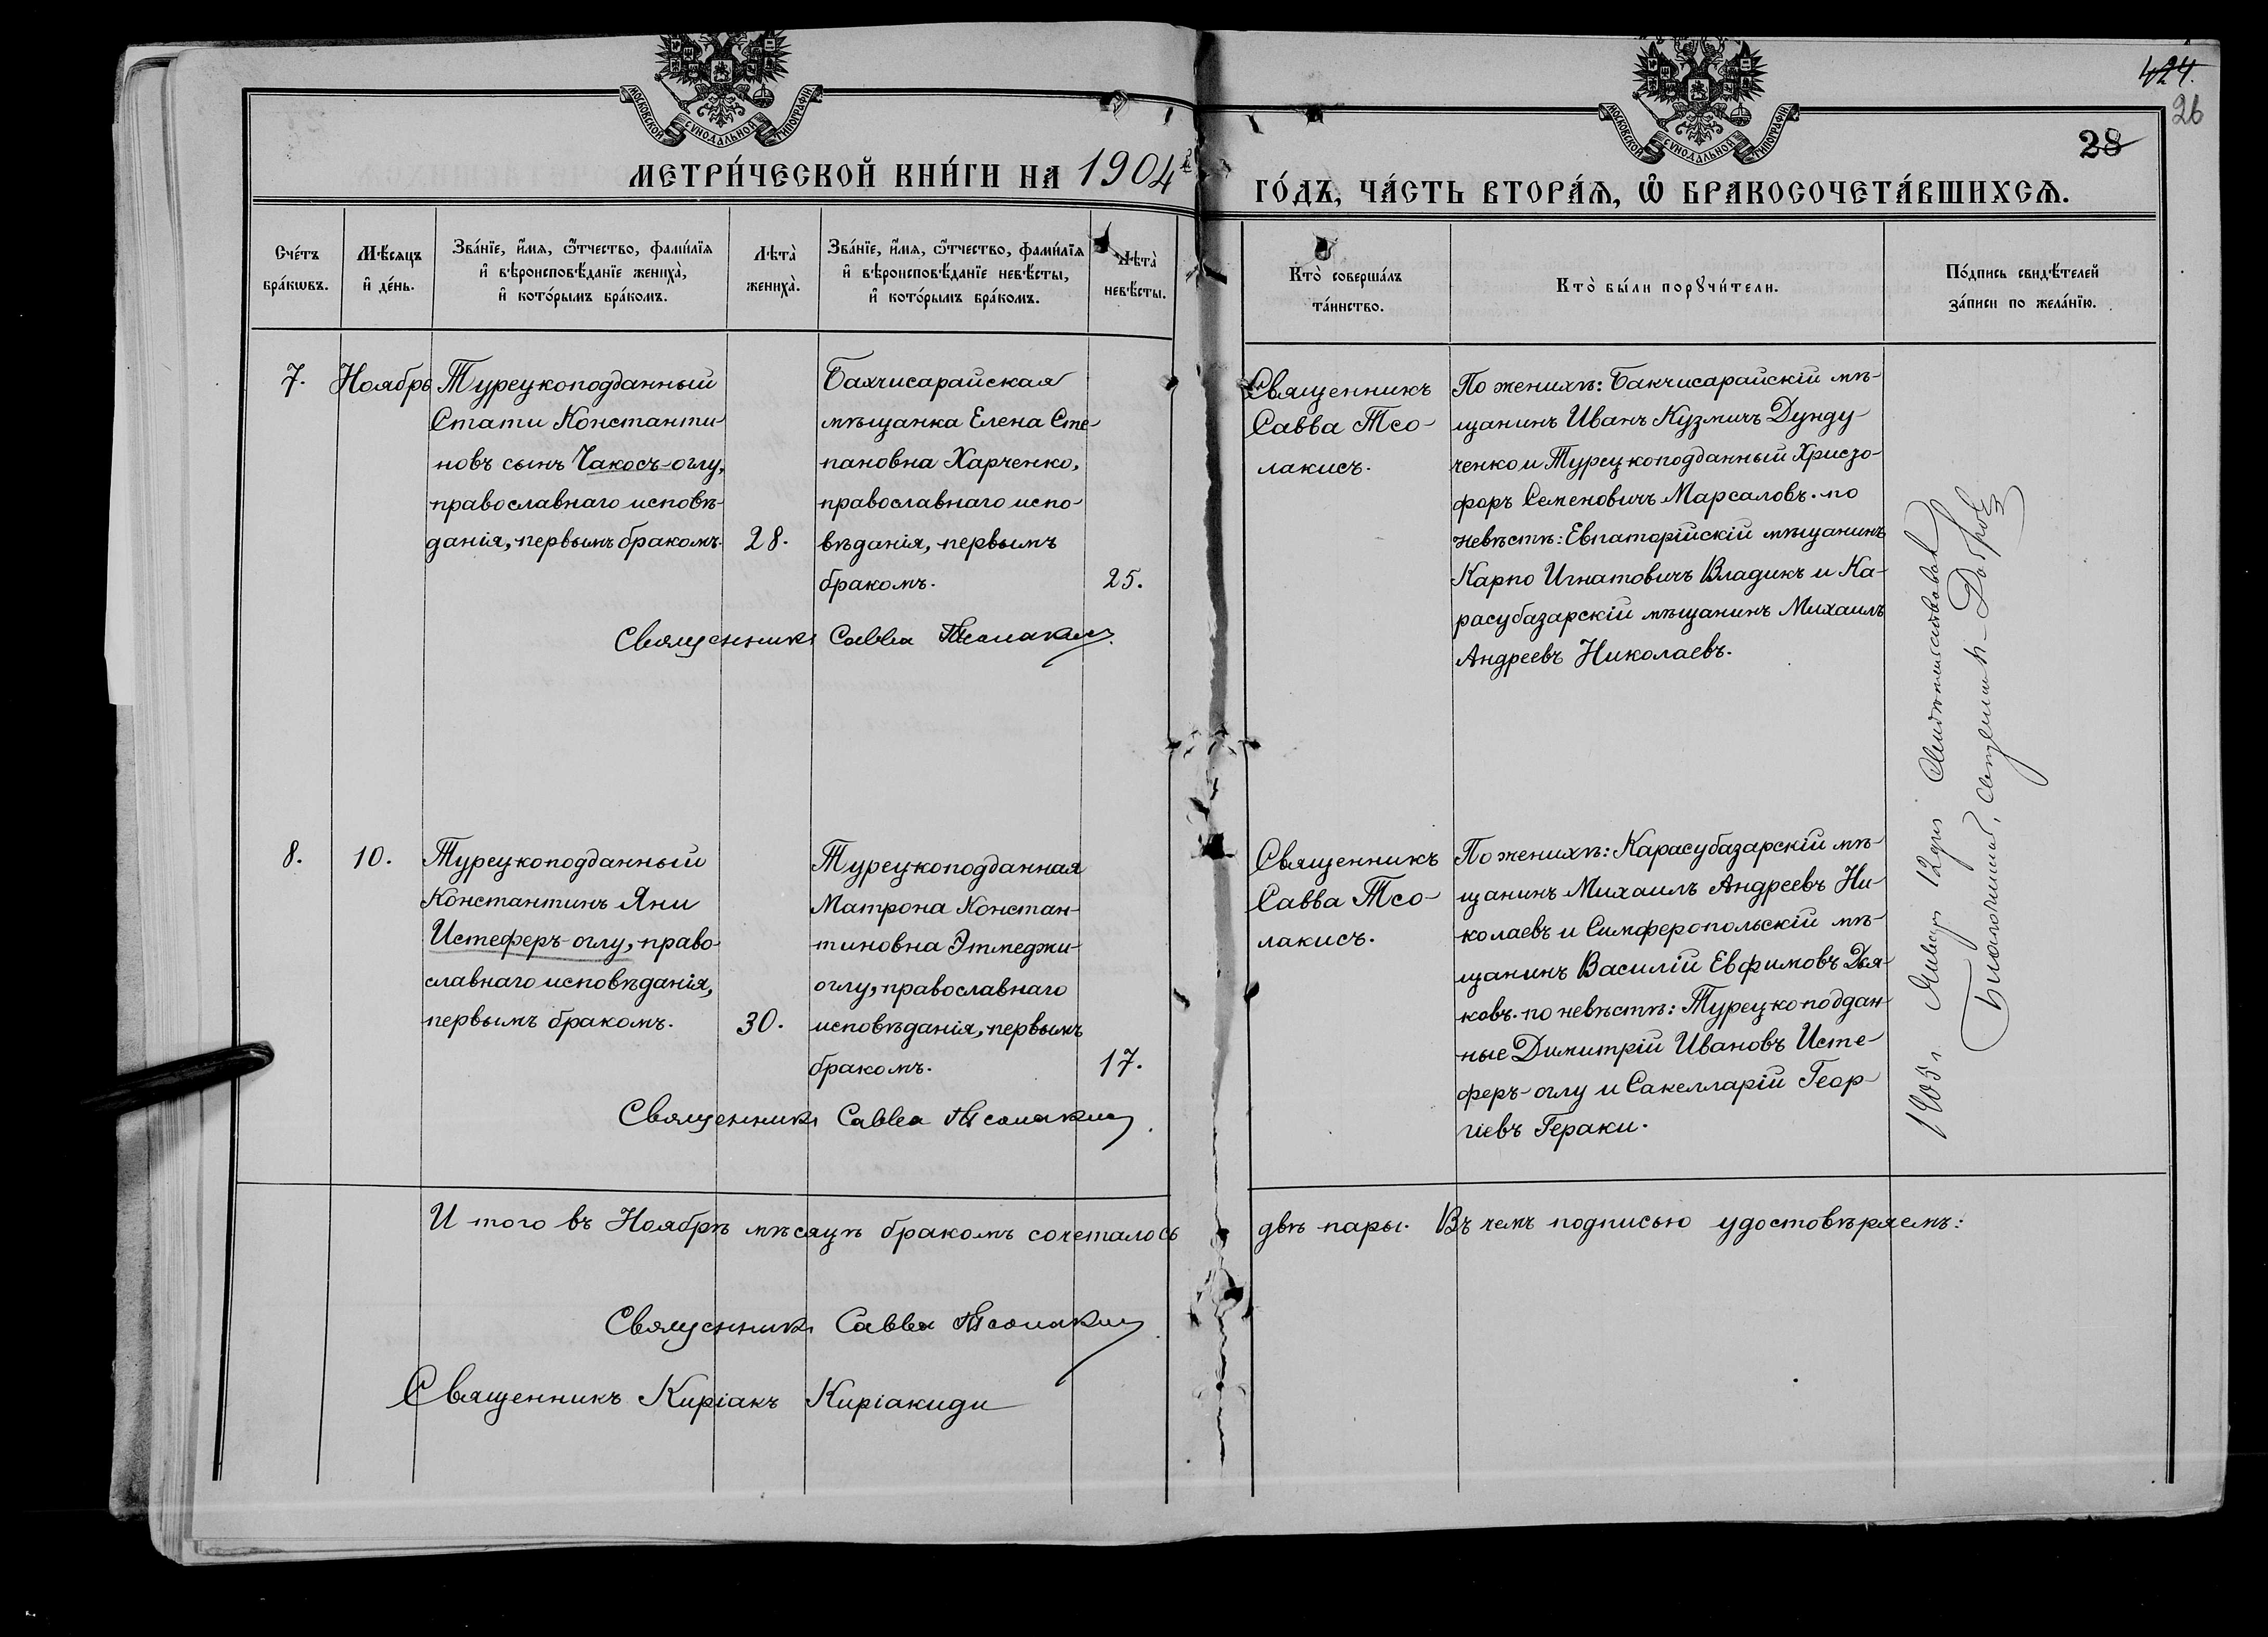 МОСКОВСКОЙ СѴНОДАЛЬНОЙ ТИПОГРАФІИ
МОСКОВСКОЙ СѴНОДАЛЬНОЙ ТИПОГРАФІИ
424.
26
28
МЕТРИ́ЧЕСКОЙ КНИ́ГИ НА 1904й
ГО́ДЪ, ЧА́СТЬ ВТОРА́Я, Ѽ БРАКОСОЧЕТА́ВШИХСѦ.
Сче́тъ бра́кѡвъ.
Мѣ́сяцъ и҆ де́нь.
Зва́нїе, и҆́мя, ѻ҆́тчество, фами́лїя и҆ вѣроисповѣ́данїе жениха̀, и҆ кото́рымъ бра́комъ.
Лѣта̀ жениха̀.
Зва́нїе, и҆́мя, ѻ҆́тчество, фами́лїя и҆ вѣроисповѣ́данїе невѣ́сты, и҆ кото́рымъ бра́комъ.
Лѣта̀ невѣ́сты.
Кто̀ соверша́лъ та́инство.
Кто̀ бы́ли порꙋчи́тели.
По́дпись свидѣ́телей за́писи по жела́нїю.
7.
Ноябрь
Турецкоподданный
Стати Константи-
новъ сынъ Чакосъ-оглу,
православнаго исповѣ-
данія, первымъ бракомъ.
28.
Бахчисарайская
мѣщанка Елена Сте-
пановна Харченко,
православнаго испо-
вѣданія, первымъ
бракомъ.
25.
Священникъ Савва Тсолакисъ.
Священникъ
Савва Тсо-
лакисъ.
По женихѣ: Бакчисарайскій мѣ-
щанинъ Иванъ Кузмичъ Дунду-
ченко и Турецкоподданный Хризо-
форъ Семеновичъ Марсаловъ. по
невѣстѣ: Евпаторійскій мѣщанинъ
Карпо Игнатовичъ Владикъ и Ка-
расубазарскій мѣщанинъ Михаилъ
Андреевъ Николаевъ.
8.
10.
Турецкоподданный
Константинъ Яни
Истеферъ-оглу, право-
славнаго исповѣданія,
первымъ бракомъ.
30.
Турецкоподданная
Матрона Констан-
тиновна Этмеджи-
оглу, православнаго
исповѣданія, первымъ
бракомъ.
17.
Священникъ Савва Тсолакисъ.
Священникъ
Савва Тсо-
лакисъ.
По женихѣ: Карасубазарскій мѣ-
щанинъ Михаилъ Андреевъ Ни-
колаевъ и Симферопольскій мѣ-
щанинъ Василій Евфимовъ Дья-
ковъ. по невѣстѣ: Турецкоподдан-
ные Димитрій Ивановъ Исте-
феръ-оглу и Сакелларій Геор-
гіевъ Гераки.
1905 г. Январ 12 дня Свидѣтельствовалъ
Благочинный, священникъ
И того въ Ноябрѣ мѣсяцѣ бракомъ сочеталось двѣ пары. Въ чемъ подписью удостовѣряемъ:
Священникъ Савва Тсолакисъ.
Священникъ Киріакъ Киріакиди